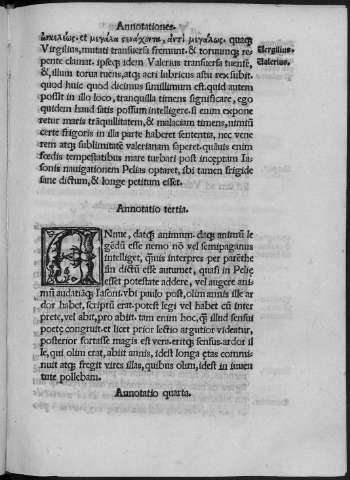 Annotationes.
ὠκελέως, et μεγάλα ἰάχοντα, ἀντὶ μεγάλως. quaqꝫ
Virgilius, mutati transuersa fremunt. & toruumqꝫ re Vergilius.
pente clamat. ipseqꝫ idem Valerius transuersa tuentē, Valerius.
&, illum torua tuens, atqꝫ acri lubricus astu rex subit.
quod huic quod dicimus simillimum est. quid autem
possit in illo loco, tranquilla timens significare, ego
quidem haud satis possum intelligere. si enim expone
retur maris trāquillitatem, & malaciam timens, nimiū
certe frigoris in illa parte haberet sententia, nec vene
rem atqꝫ sublimitatē valerianam saperet. quāuis enim
fœdis tempestatibus mare turbari post inceptam Ia-
sonis nauigationem Pelias optaret, sibi tamen frigide
sane dictum, & longe petitum esset.
Annotatio tertia.
Neue, datqꝫ animum. datqꝫ animū le
gēdū esse nemo nō vel semipaganus
intelliget, q̄uis interpres per parēthe
sin dictū esse autumet, quasi in Pelię
esset potestate addere, vel augere ani-
mū audatiāqꝫ Iasoni. vbi paulo post, olim annis ille ar
dor habet, scriptū erat. potest legi vel habet cū inter
prete, vel abit, pro abiit. tam enim hoc, q̄ illud sensui
poetę congruit. et licet prior lectio argutior videatur,
posterior fortasse magis est vera. eritqꝫ sensus. ardor il
le, qui olim erat, abiit annis, idest longa ętas commi-
nuit atqꝫ fregit vires illas, quibus olim, idest in iuuen
tute pollebam.
Annotatio quarta.